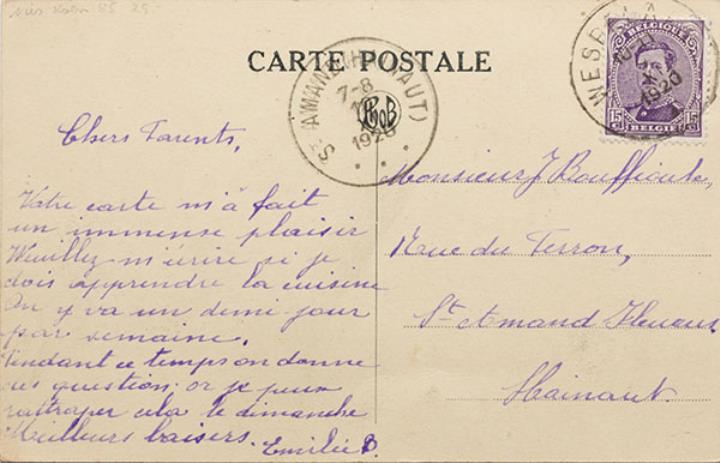 CARTE POSTALE
ST AMAND (HAINAUT)
7-8
1920
WESP
1920
15 C
15 C
BELGIE
Chers Parents,
Votre carte m'a fait
un immense plaisir
Veuillez m'écrire si je
dois apprendre la cuisine
On y va un demi jour
par semaine.
Pendant ce temps on donne
des question. or je peux
rattraper cela le dimanche
Meilleurs baisers. Emilie B.
Monsieur J Bouffioule,
Rue du Terron,
St Amand Fleurus
Hainaut.